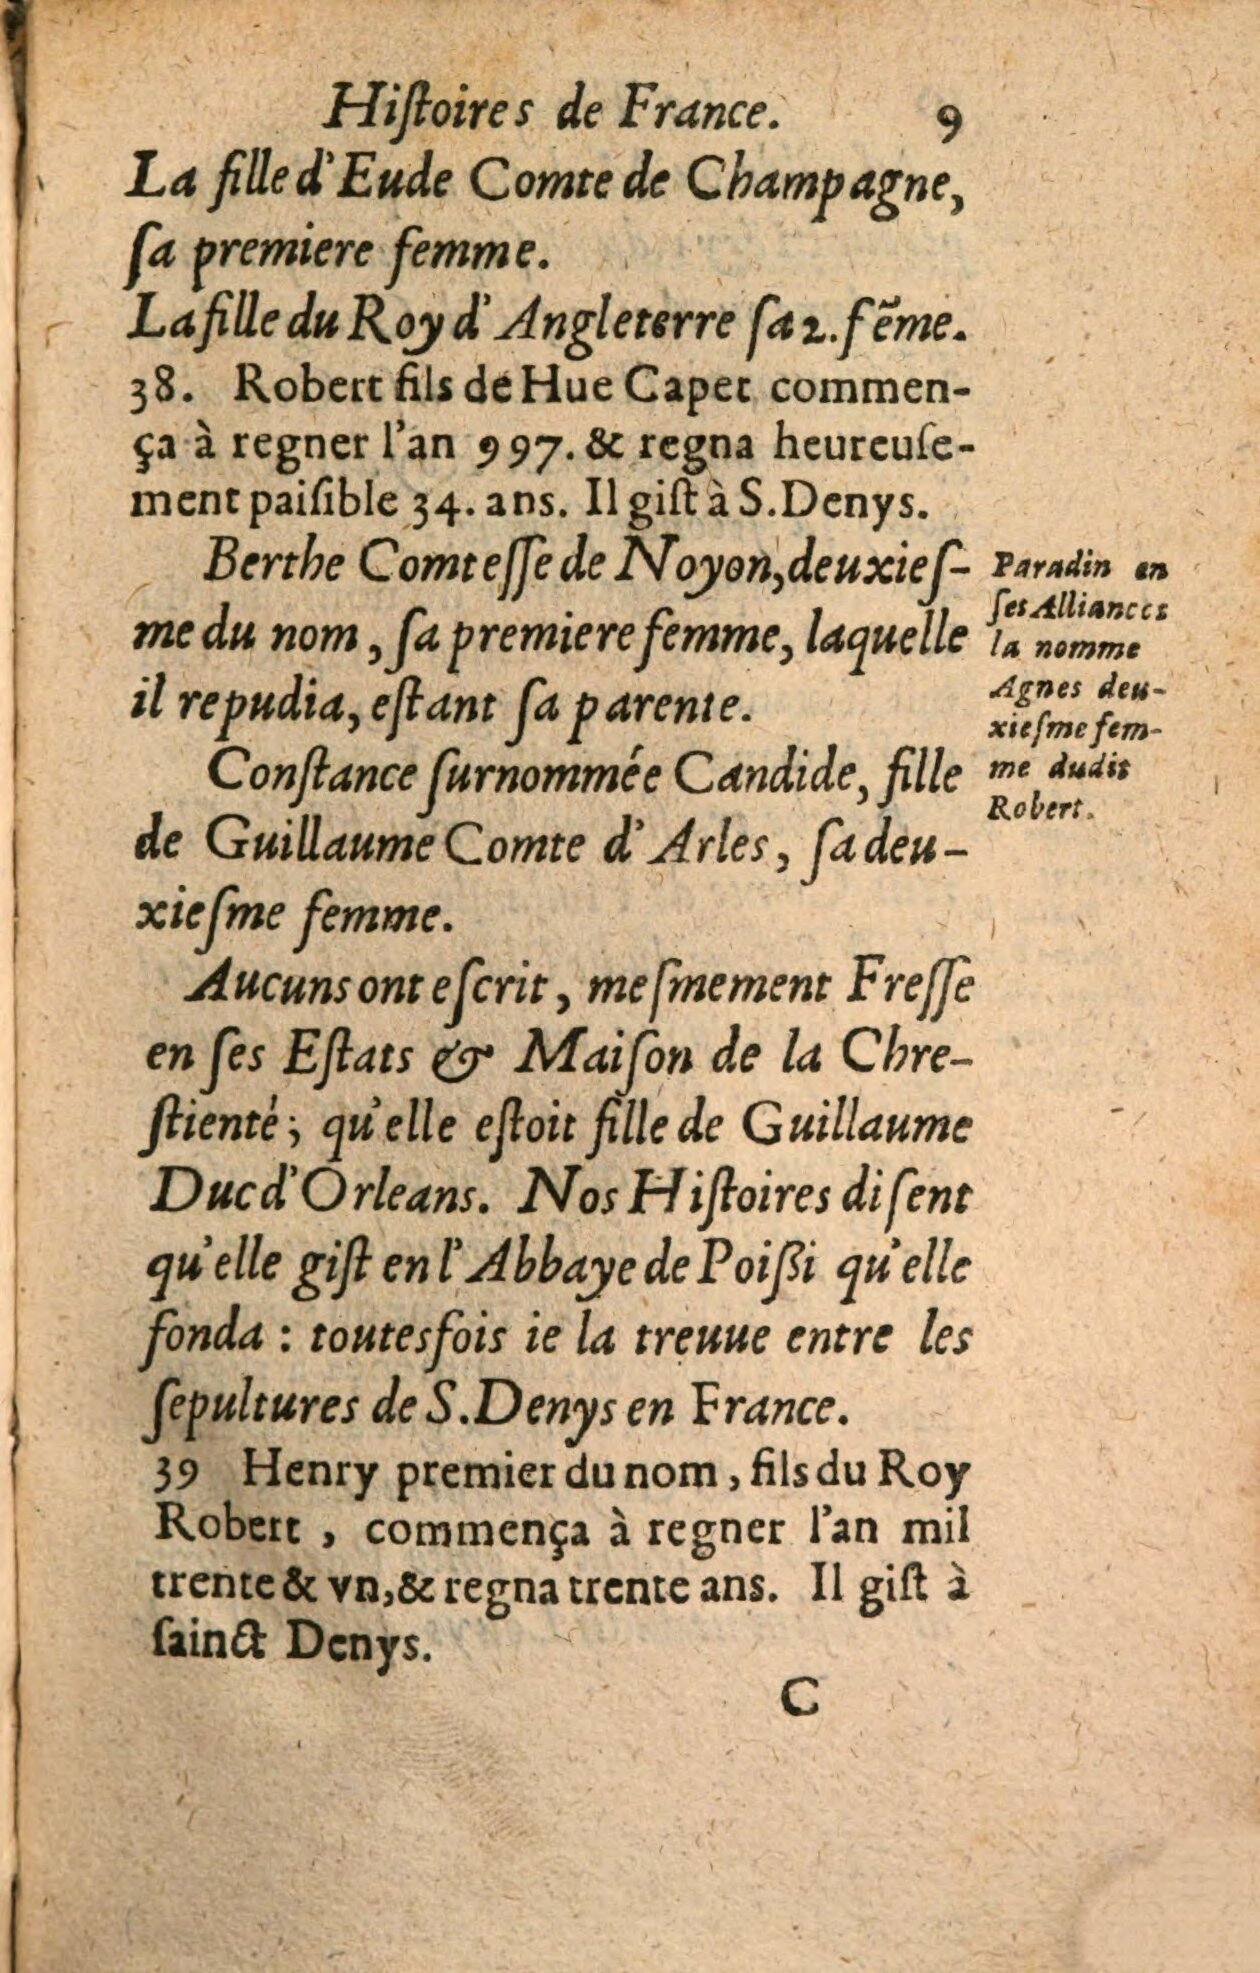 Hiſtoires de France. 9
La fille d'Eude Comte de Champagne,
ſa premiere femme.
La fille du Roy d'Angleterre ſa 2. fẽme.
38. Robert fils de Hue Capet commen-
ça à regner l'an 997. & regna heureuſe-
ment paiſible 34. ans. Il giſt à S. Denys.
Berthe Comteſſe de Noyon, deuxieſ-
me du nom, ſa premiere femme, laquelle
il repudia, eſtant ſa parente.
Paradin en
ſes Alliances
la nomme
Agnes deu-
xieſme fem-
me dudit
Robert.
Conſtance ſurnommée Candide, fille
de Guillaume Comte d'Arles, ſa deu-
xieſme femme.
Aucuns ont eſcrit, meſmement Freſſe
en ſes Eſtats & Maiſon de la Chre-
ſtienté; qu'elle eſtoit fille de Guillaume
Duc d'Orleans. Nos Hiſtoires diſent
qu'elle giſt en l'Abbaye de Poißi qu'elle
fonda : toutesfois ie la treuue entre les
ſepultures de S. Denys en France.
39 Henry premier du nom, fils du Roy
Robert, commença à regner l'an mil
trente & vn, & regna trente ans. Il giſt à
ſainct Denys.
C